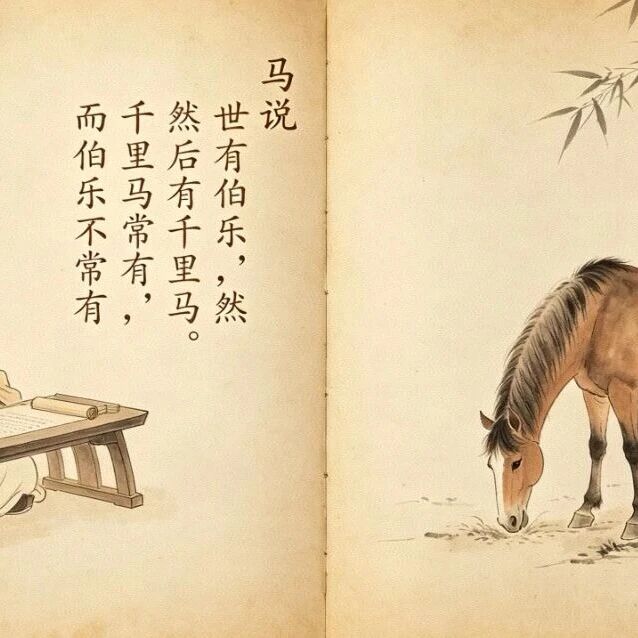 马说
世有伯乐，，然
然后有千里马。
千里马常有，，
而伯乐不常有